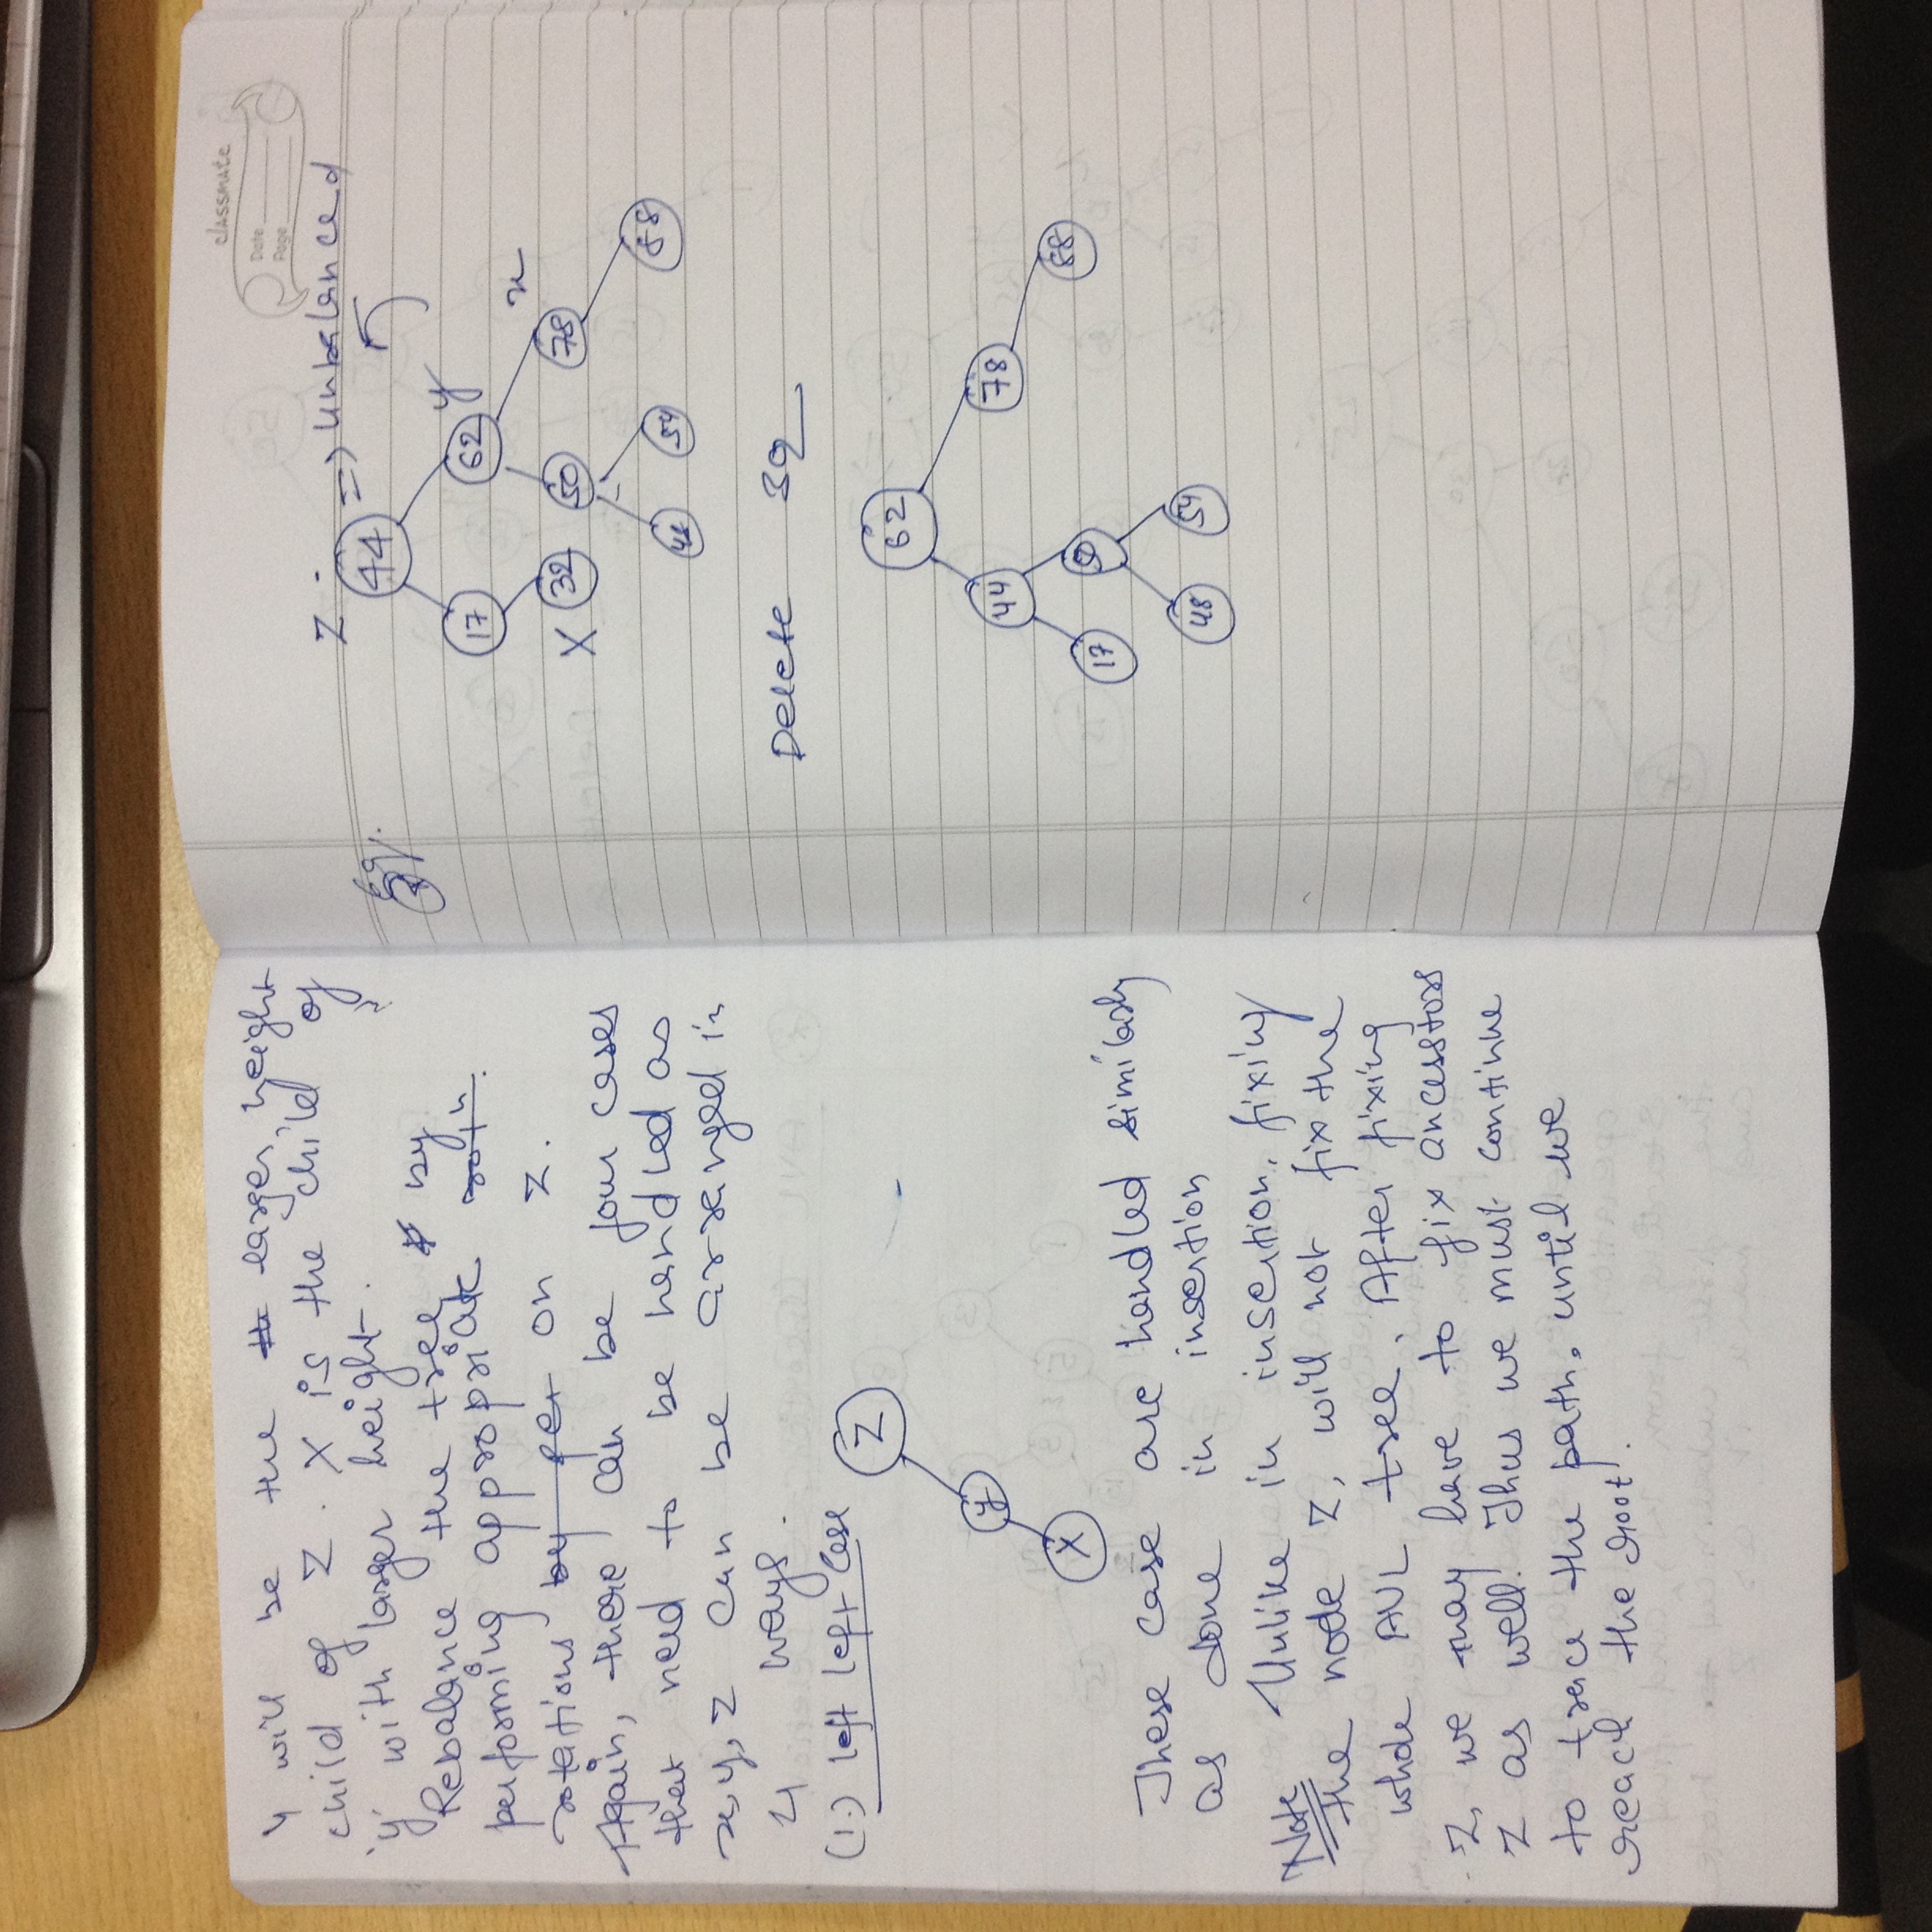 y will be the larger height
child of Z. X is the child of
'y' with larger height.
Rebalance the tree by
performing appropriate rotn.
rotations by per on Z.
Again, there can be four cases
that need to be handled as
x, y, z can be arranged in
4 ways.
(1.) left left case
Z
y
X
These case are handled similarly
as done in insertion
Note Unlike in insertion, fixing
the node Z, will not fix the
whole AVL tree. After fixing
Z, we may have to fix ancestors
Z as well! Thus we must continue
to trence the path, until we
reach the root!
classmate
Date
Page
Z.
44 => unbalanced
17 62 y
X 32 50 78 x
48 54 88
Delete 32
62
44 78
17 50 88
48 54